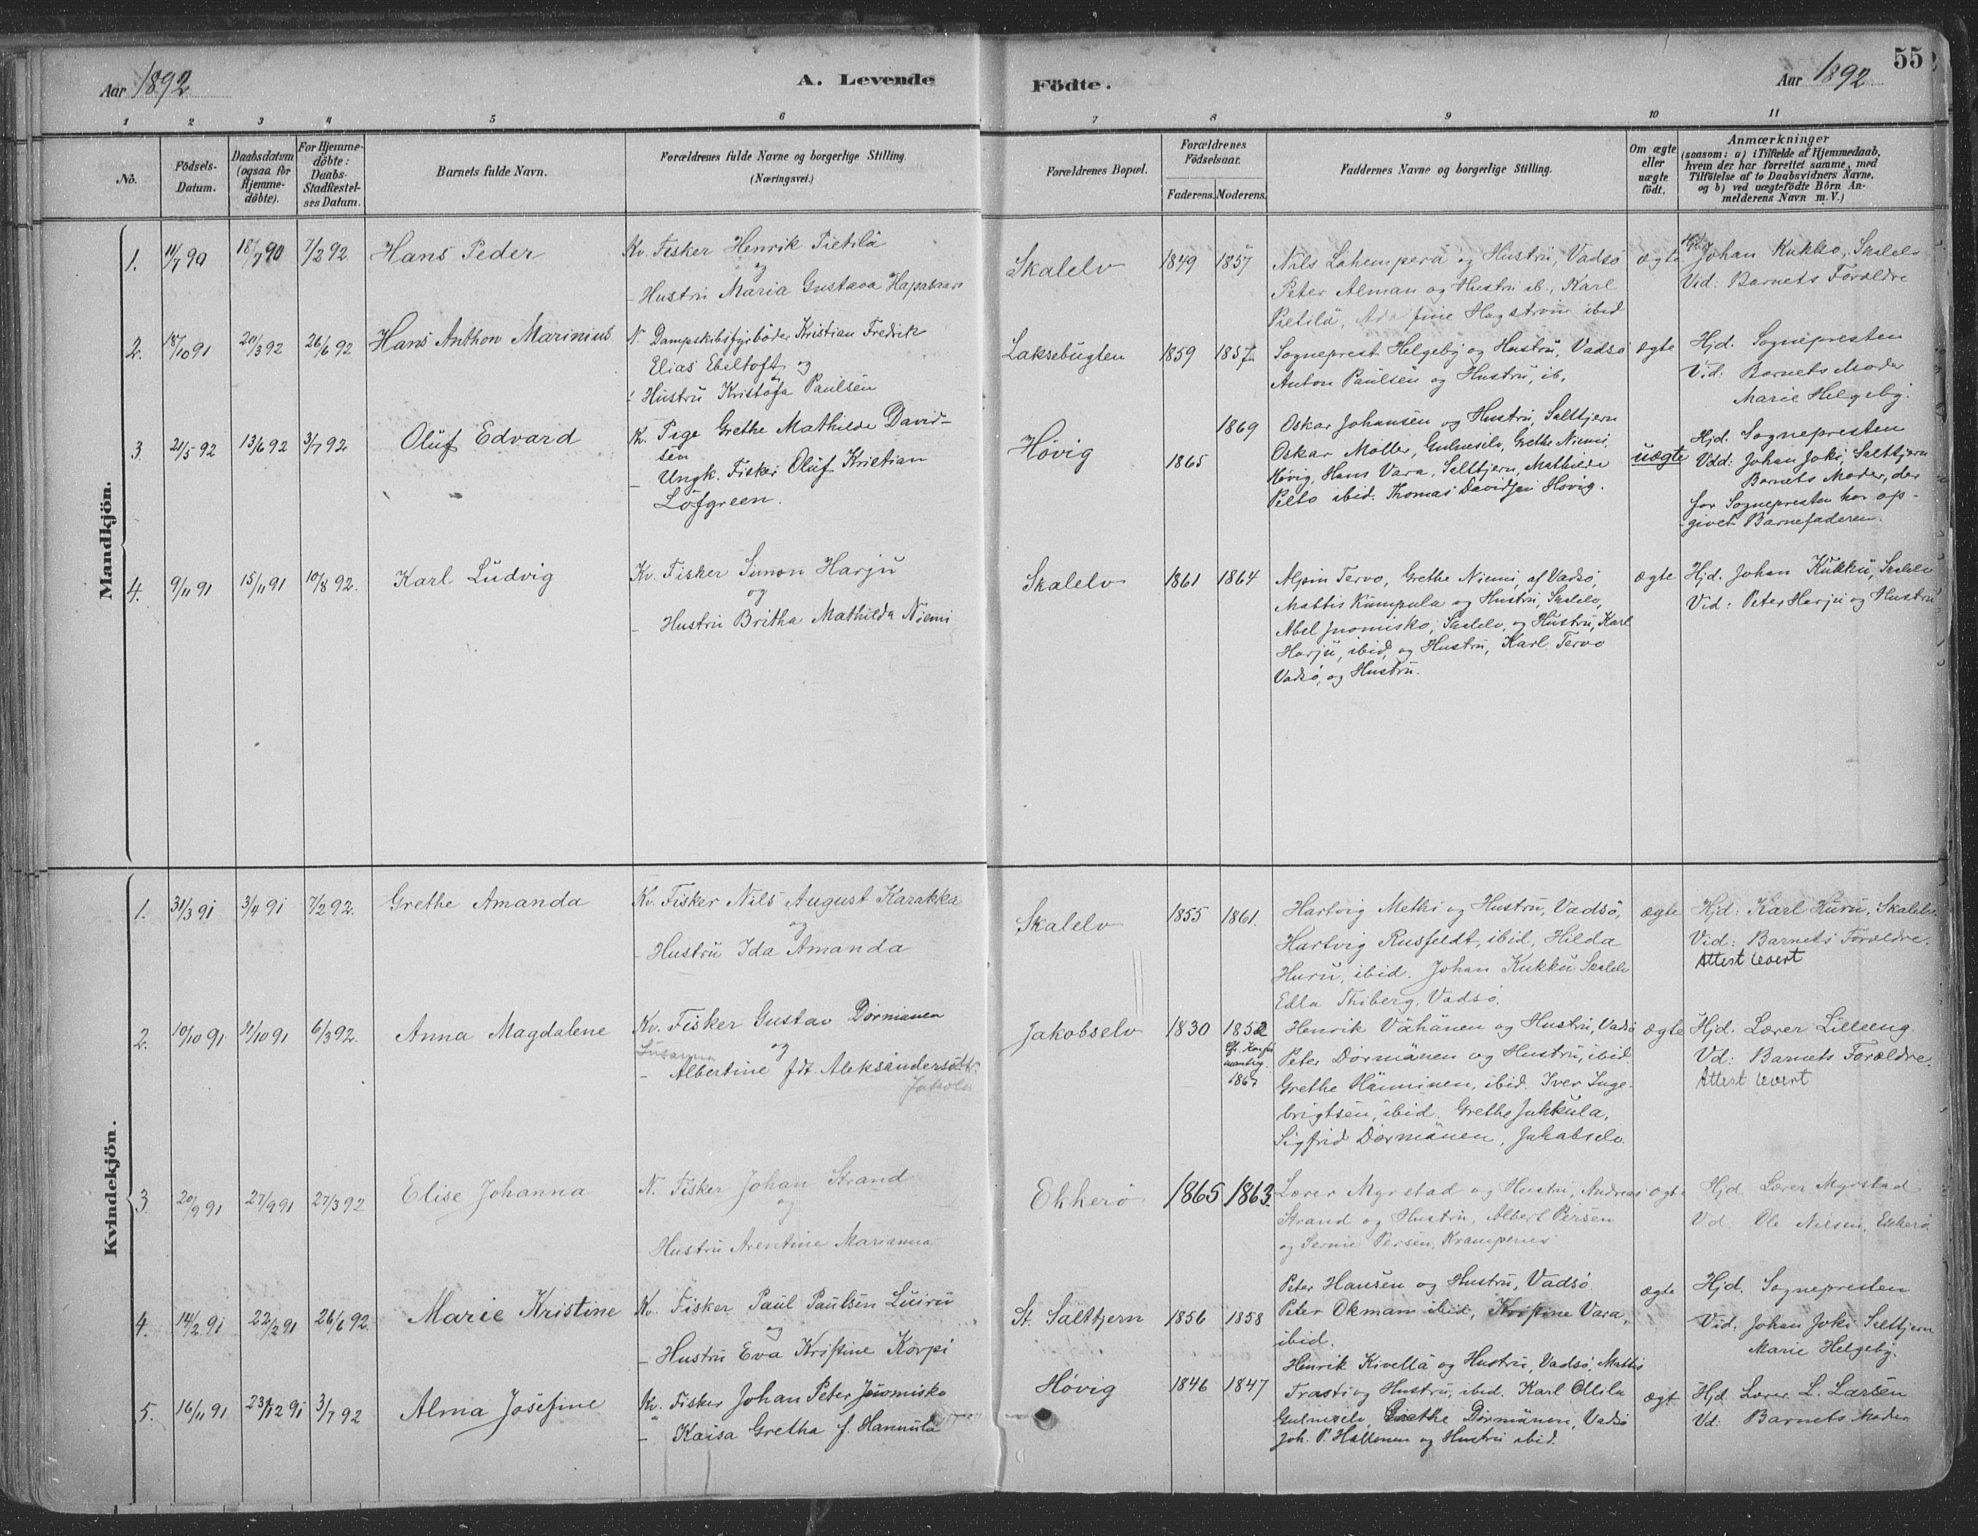 Aar 1892
A. Levende
Födte.
Aar 1892
55
1 2 3 4 5 6 7 8 9 10 11
No.
Födsels-Datum.
Daabsdatum (ogsaa for Hjemme-döbte).
For Hjemme-döbte: Daabs-Stadfæstel-ses Datum.
Barnets fulde Navn.
Forældrenes fulde Navne og borgerlige Stilling.
(Næringsvei.)
Forældrenes Bopæl.
Forældrenes Födselsaar.
Faderens. Moderens.
Faddernes Navne og borgerlige Stilling.
Om ægte eller uægte födt.
Anmærkninger
(saasom: a) i Tilfælde af Hjemmedaab,
hvem der har forrettet samme, med
Tilföielse af to Daabsvidners Navne,
og b) ved uægtefödte Börn An-
melderens Navn m. V.)
Mandkjön.
1. 11/7 90 18/7 90 7/2 92 Hans Peder
Kv. Fisker Henrik Pietilä
og
- Hustru Maria Gustava
Skalelv 1849 1857
Nils Lahempera og Hustru, Vadsö
Peter Alman og Hustru ib., Karl
Pietilä, fine Hagstrøm ibid
ægte
Hjd. Johan Kukko, Skalelv
Vid: Barnets Forældre
2. 18/10 91 20/3 92 26/6 92 Hans Anthon Marinius
N. Dampskibsfyrböder Kristian Fredrik
Elias Ebeltoft og
Hustru Kristofa Paulsen
Laksebugten 1859 1857
Sogneprest Helgeby og Hustru, Vadsö
Anton Paulsen og Hustru, ib.
ægte
Hjd. Sognepresten
Vid: Barnets Moder
Marie Helgeby.
3 21/5 92 13/6 92 3/7 92 Oluf Edvard
K. Pige Grethe Mathilde David-
sen
- Ungk. Fisker Oluf Kristian
Löfgreen.
Høvig 1865 1869
Oskar Johansen og Hustru, Saltbjern
Oskar Møller, Gulneselv, Grethe Niemi,
Høvig, Hans Vara, Saltbjern, Mathilde
Pelto ibid. Thomas Davidsen Høvig.
uægte
Hjd. Sognepresten
Vdd: Johan Joki, Saltbjern
Barnets Moder, der
for Sognepresten har op-
givet Barnefaderen.
4. 9/11 91 15/11 91 10/8 92. Karl Ludvig
Kv. Fisker Simon Harju
og
- Hustru Britha Mathilda Niemi
Skalelv 1861 1864
Tervo, Grethe Niemi, af Vadsö,
Mattis Kumpula og Hustru, Skalelv,
Abel Juomisko, Skalelv, og Hustru, Karl
Harju, ibid, og Hustru, Karl Tervo
Vadsö, og Hustru.
ægte
Hjd. Johan Kukku, Skalelv
Vid: Peter Harju og Hustru
Kvindekjön.
1. 31/3 91 3/4 91 7/2 92. Grethe Amanda
Kv. Fisker Nils August Karakka
og
- Hustru Ida Amanda
Skalelv 1855 1861.
Hartvig Methi og Hustru, Vadsö,
Hartvig Rusfeldt, ibid, Hilda
Huru, ibid. Johan Kukku Skalelv
Edla Thiberg, Vadsö.
ægte
Hjd: Karl Huru, Skalelv
Vid: Barnets Forældre.
Attest levert
2. 10/10 91 /10 91 6/3 92. Anna Magdalene
Kv. Fisker Gustav Dörmänen
Susanna og
- Albertine fdt. Aleksandersdtr.
Jakobselv 1830 1852
1867
Henrik Vähänen og Hustru, Vadsö
Peter Dörmänen og Hustru, ibid.
Grethe Hänninen, ibid. Iver Inge-
brigtsen, ibid. Grethe Juhkula,
Sigfrid Dörmänen, Jakobselv.
ægte
Hjd: Lærer Lilleeng.
Vd: Barnets Forældre.
Attest levert
3. 20/9 91 27/9 91 27/3 92 Elise Johanna
N. Fisker Johan Strand
og
Hustru Arentine Marianna
Ekkerö 1865 1863.
Lærer Myrstad og Hustru, Andreas
Strand og Hustru, Albert Persen
og Persen, Krampenes
ægte
Hjd Lærer Myrstad
Vd: Ole Nilsen, Ekkerö
4. 14/2 91 22/2 91 26/6 92. Marie Kristine
Kv. Fisker Paul Paulsen Luiru
og
- Hustru Eva Kristine Korpi
St. Saltbjern 1856 1858
Peter Hansen og Hustru, Vadsö
Peter Okman ibid, Kristine Vara,
ibid.
ægte
Hjd. Sognepresten
Vid: Johan Joki Saltbjern
Marie Helgeby.
5. 16/11 91 23/12 91 3/7 92 Alma Josefine
Kv. Fisker Johan Peter Juomisko
- Kaisa Gretha f. Hannula
Høvig 1846 1847
Henrik Kivellä og Hustru, Vadsö, Mattis
Frasti og Hustru, ibid. Karl Ollila
Gulneselv, Grethe Dörmänen, Vadsö
Joh. P. Hallonen og Hustru ibid.
ægt
Hjd. Lærer L. Larsen
Vd: Barnets Moder